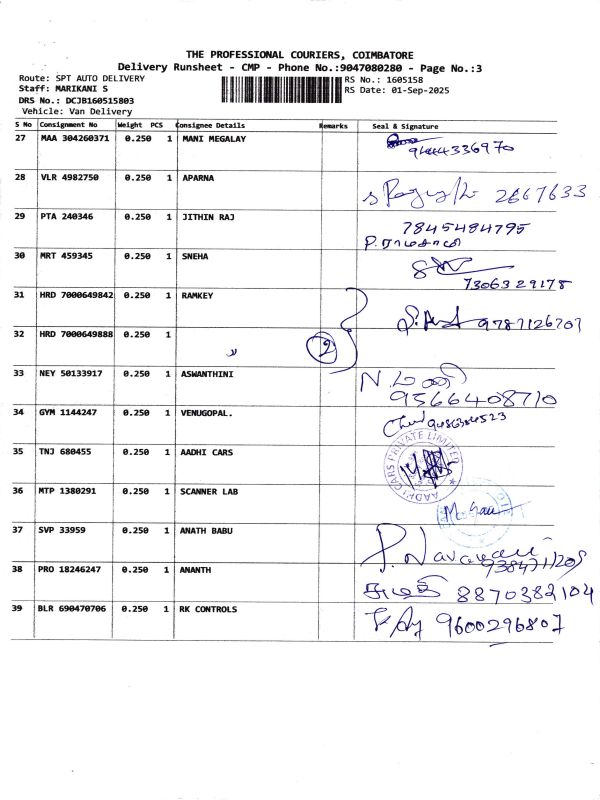 THE PROFESSIONAL COURIERS, COIMBATORE
Delivery Runsheet - CMP - Phone No.:9047080280 - Page No.:3
Route: SPT AUTO DELIVERY
RS No.: 1605158
Staff: MARIKANI S
RS Date: 01-Sep-2025
DRS No.: DCJB160515803
Vehicle: Van Delivery
S No Consignment No Weight PCS Consignee Details Remarks Seal & Signature
27 MAA 304260371 0.250 1 MANI MEGALAY
28 VLR 4982750 0.250 1 APARNA 2667633
29 PTA 240346 0.250 1 JITHIN RAJ 7845484795
30 MRT 459345 0.250 1 SNEHA
7306329178
31 HRD 7000649842 0.250 1 RAMKEY
32 HRD 7000649888 0.250 1 2
33 NEY 50133917 0.250 1 ASWANTHINI N. மணி
9566408710
34 GYM 1144247 0.250 1 VENUGOPAL.
35 TNJ 680455 0.250 1 AADHI CARS AADHI CARS PRIVATE LIMITED
36 MTP 1380291 0.250 1 SCANNER LAB
37 SVP 33959 0.250 1 ANATH BABU
38 PRO 18246247 0.250 1 ANANTH 8870382104
39 BLR 690470706 0.250 1 RK CONTROLS 9600296807